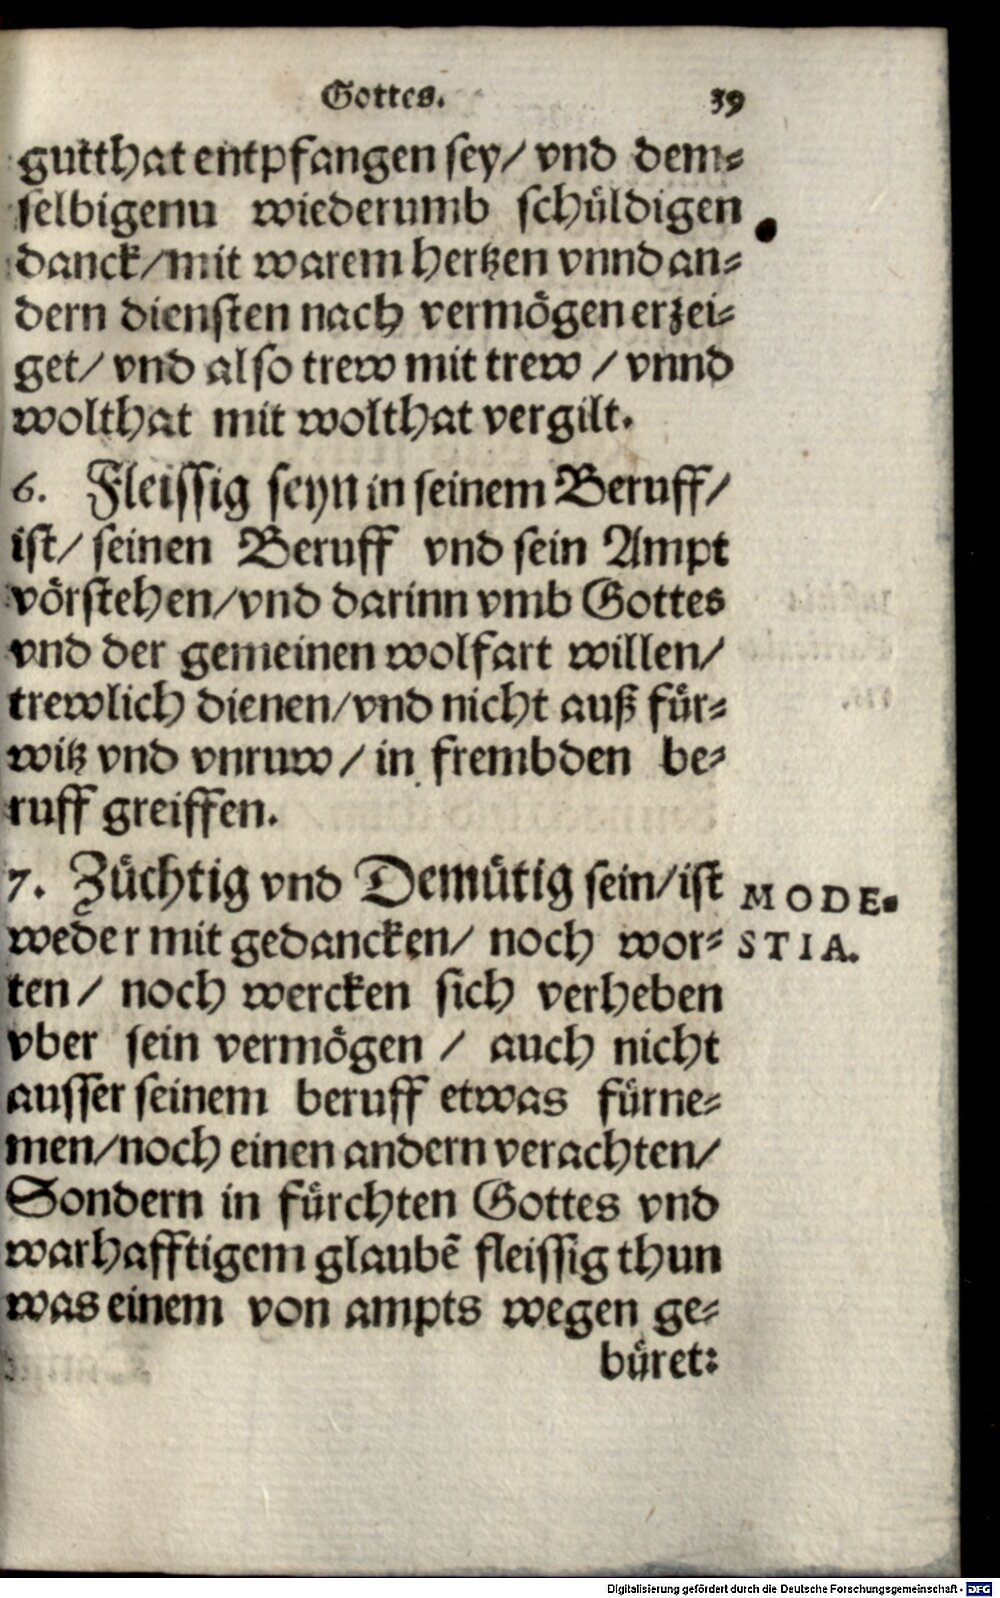 Gottes. 39
gutthat entpfangen sey/ vnd dem⸗
selbigenn wiederumb schüldigen
danck/mit warem hertzen vnnd an⸗
dern diensten nach vermögen erzei⸗
get/ vnd also trew mit trew / vnnd
wolthat mit wolthat vergilt.
6. Fleissig seyn in seinem Beruff/
ist/ seinen Beruff vnd sein Ampt
vörstehen/vnd darinn vmb Gottes
vnd der gemeinen wolfart willen/
trewlich dienen/vnd nicht auß für⸗
witz vnd vnruw / in frembden be⸗
ruff greiffen.
7. Züchtig vnd Demütig sein/ist MODE⸗
weder mit gedancken/ noch wor⸗ STIA.
ten / noch wercken sich verheben
vber sein vermögen / auch nicht
ausser seinem beruff etwas fürne⸗
men/noch einen andern verachten/
Sondern in fürchten Gottes vnd
warhafftigem glaubẽ fleissig thun
was einem von ampts wegen ge⸗
büret:
Digitalisierung gefördert durch die Deutsche Forschungsgemeinschaft - DFG